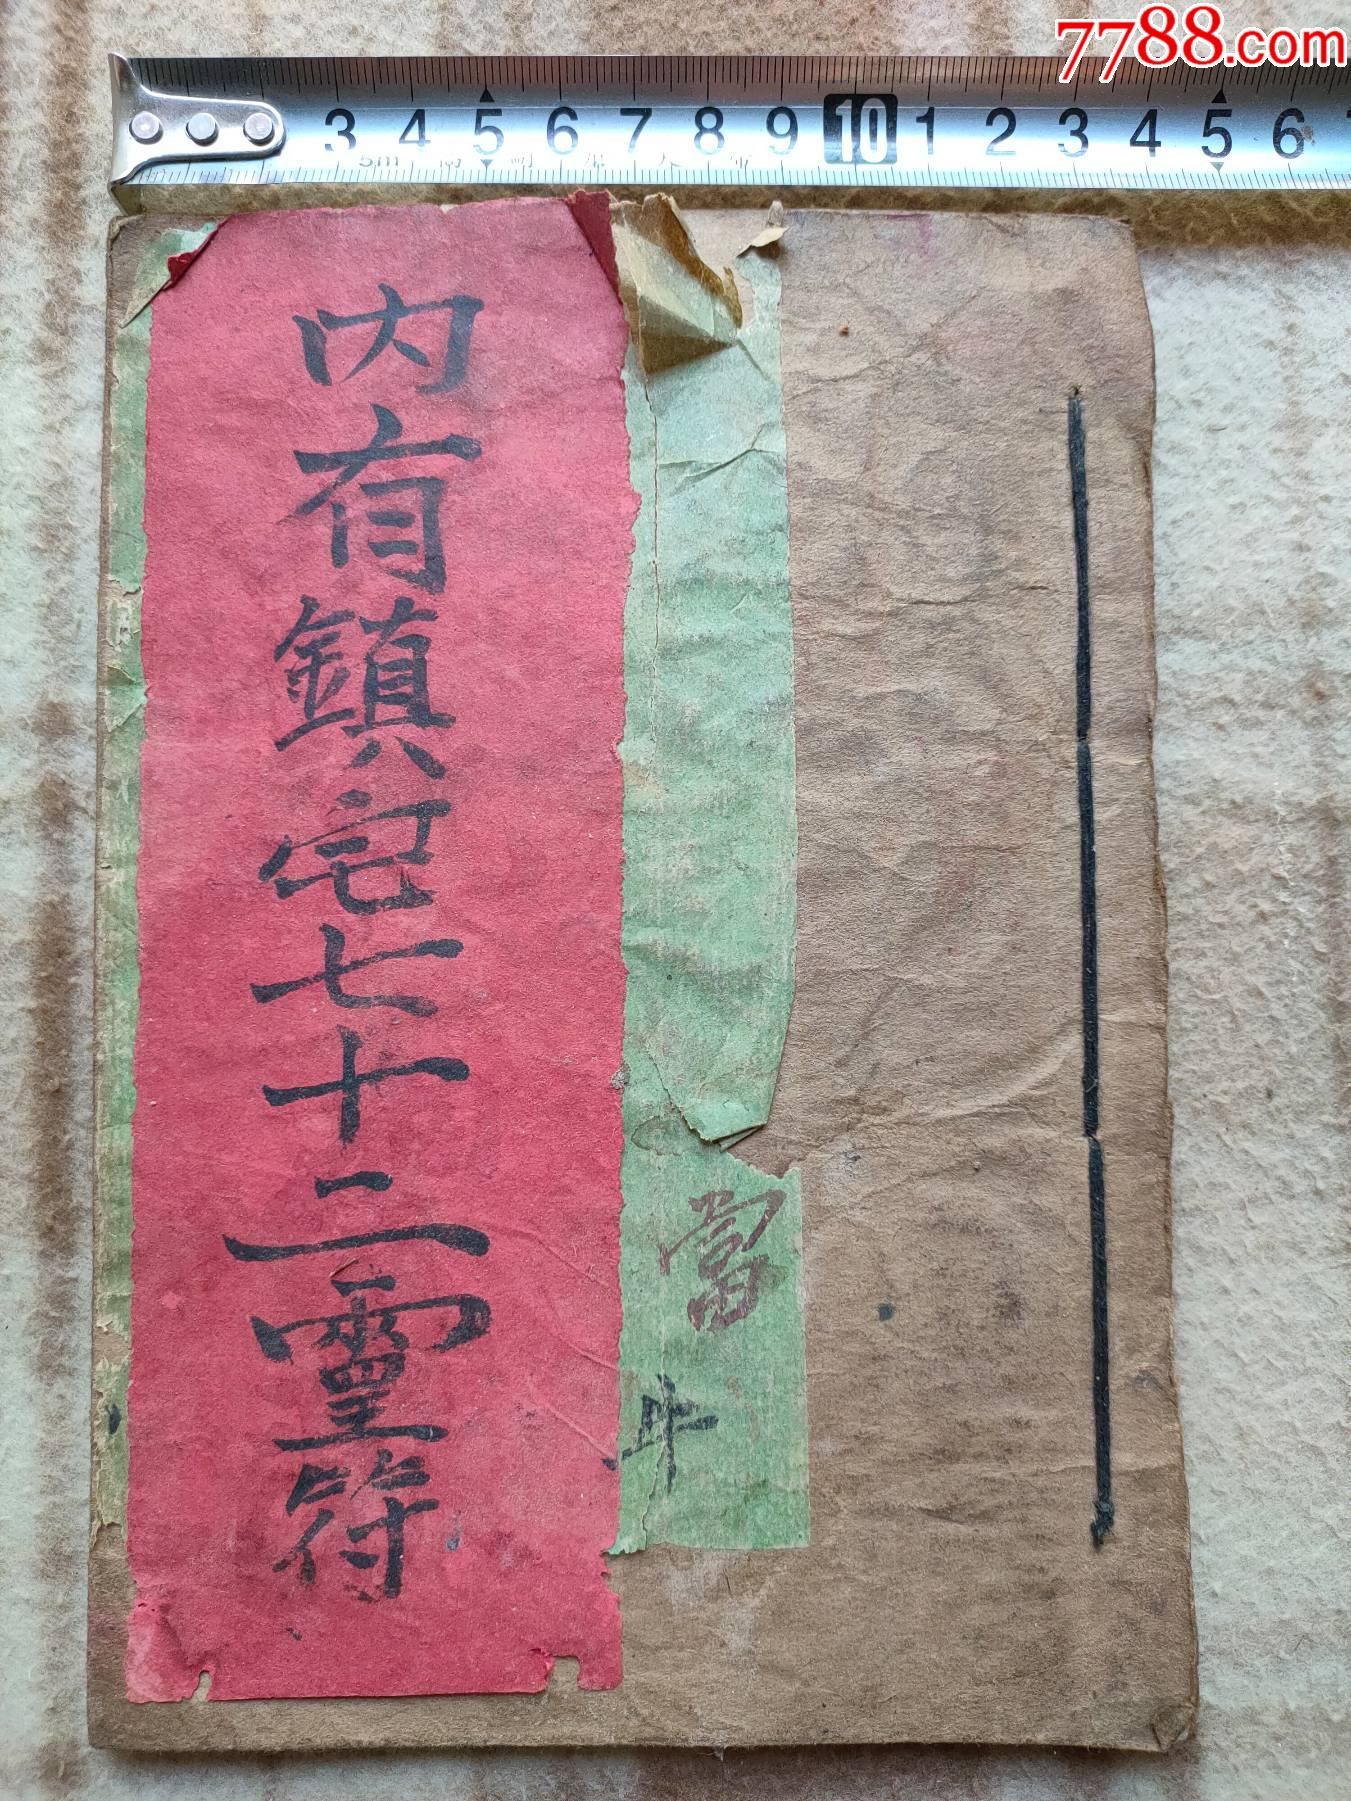 7788.com
3 4 5 6 7 8 9 10 1 2 3 4 5 6
5m
內有鎮宅七十二靈符